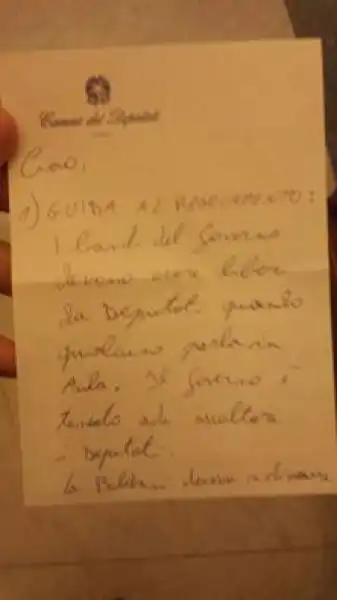 Camera dei Deputati
Ciao,
1) GUIDA AL REGOLAMENTO:
I banchi del Governo
devono essere liberi
da Deputati quando
qualcuno parla in
Aula. Il Governo è
tenuto ad ascoltare
i Deputati.
La